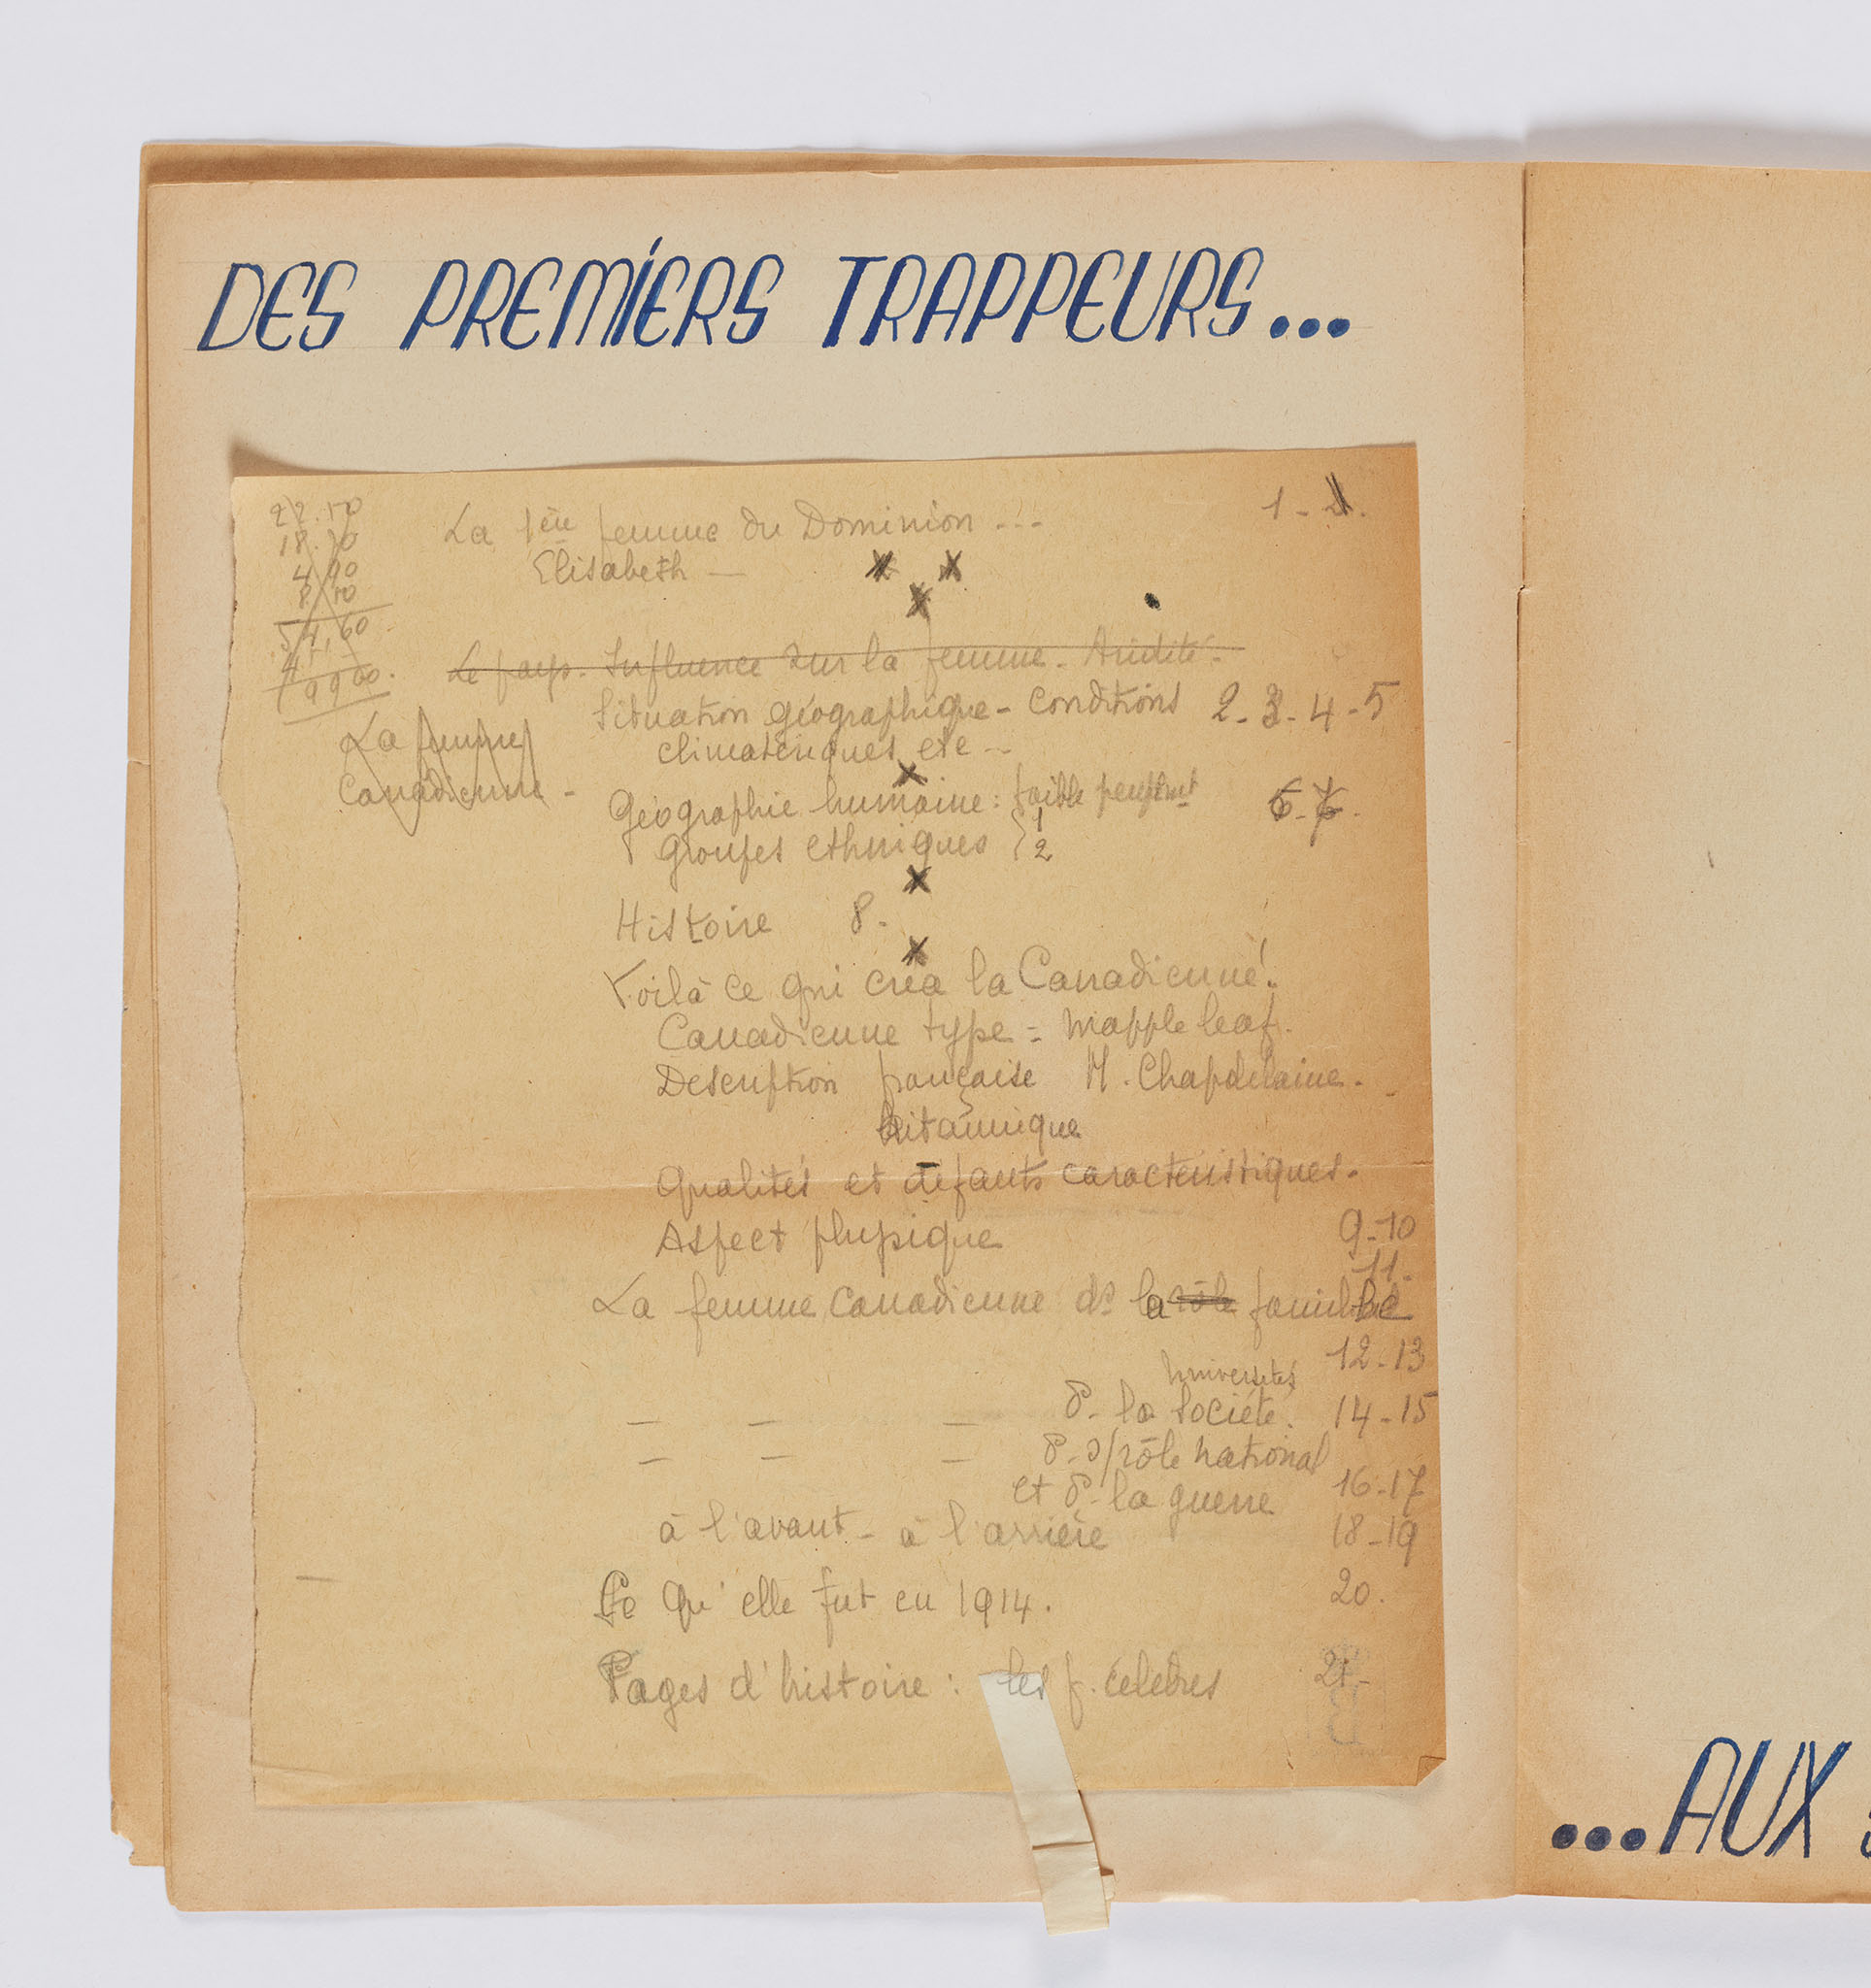 DES PREMIERS TRAPPEURS...
22.50
18.50
4.90
8.50
54,60
La 1ère femme du Dominion ---
1 -
Elisabeth —
Le pays. Influence sur la femme. Aridité.
Situation géographique - Conditions
2-3-4-5
climatériques etc --
La femme
Canadienne -
Géographie humaine : faible peuplmt
6-7.
groupes ethniques } 1
2
Histoire 8.
Voilà ce qui créa la Canadienne !.
Canadienne type = mapple leaf.
Description française M. Chapdelaine.
britannique
Qualités et défauts caractéristiques.
Aspect physique
9-10
11.
La femme Canadienne ds la rôle famille
12-13
Universités
d. la Société.
14-15
d. s/rôle national
et d. la guerre
16-17
à l'avant - à l'arrière
18-19
Ce qu'elle fut en 1914.
20.
Pages d'histoire : les f. célèbres
21-
...AUX